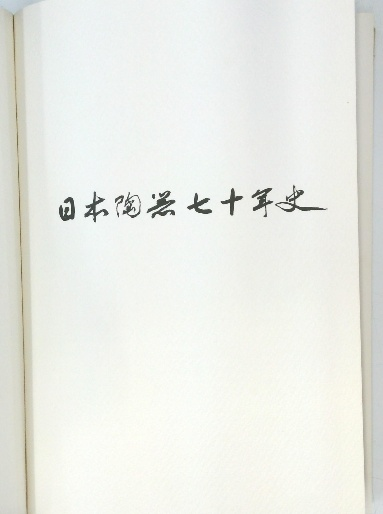 日本陶器七十年史